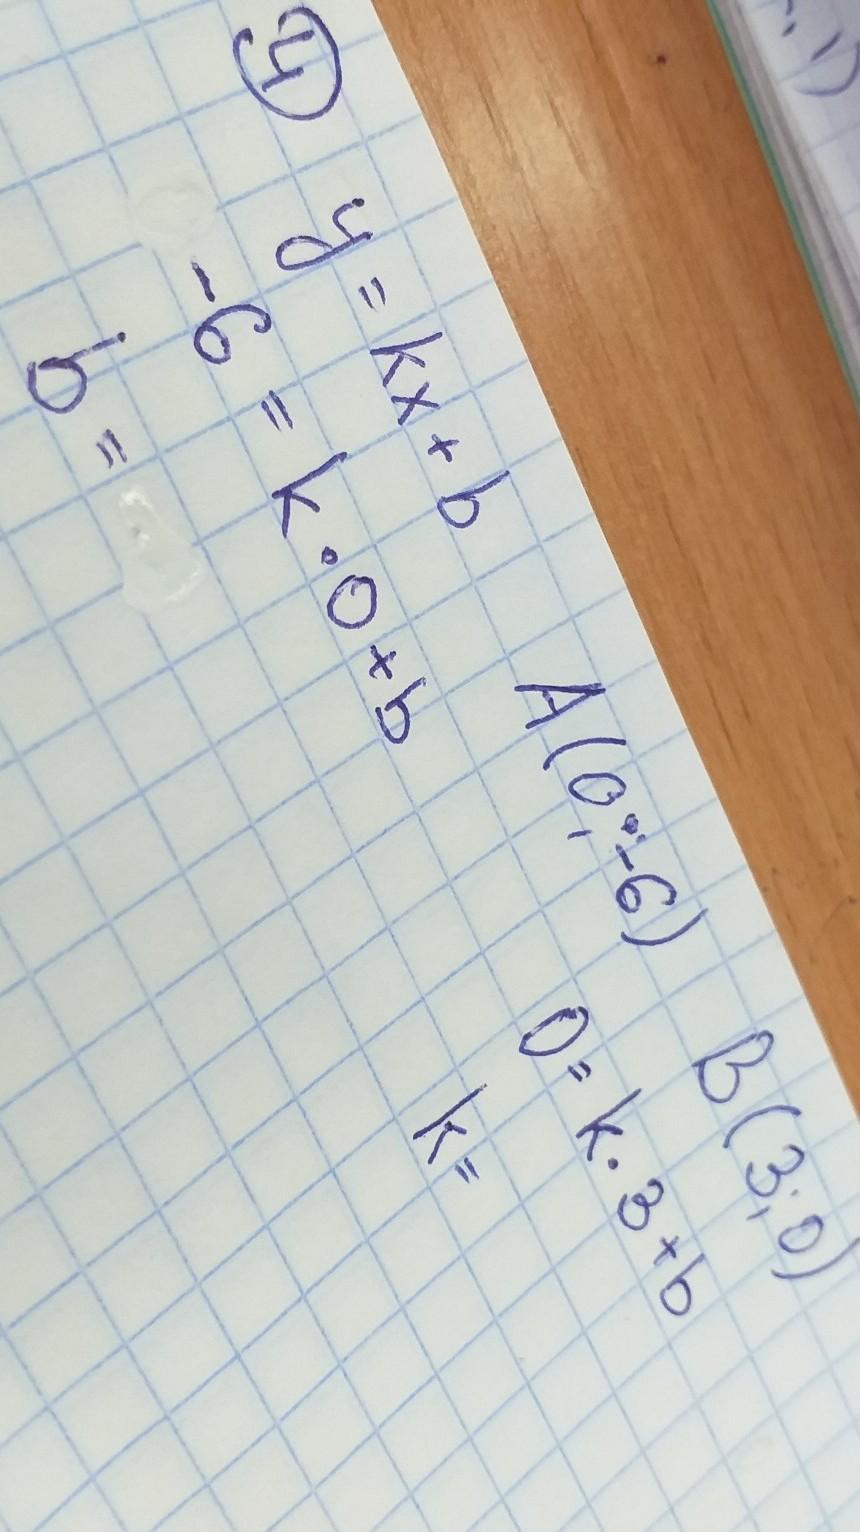 ④ y = kx + b A(0; -6) B(3; 0)
-6 = k · 0 + b 0 = k · 3 + b
b = k =